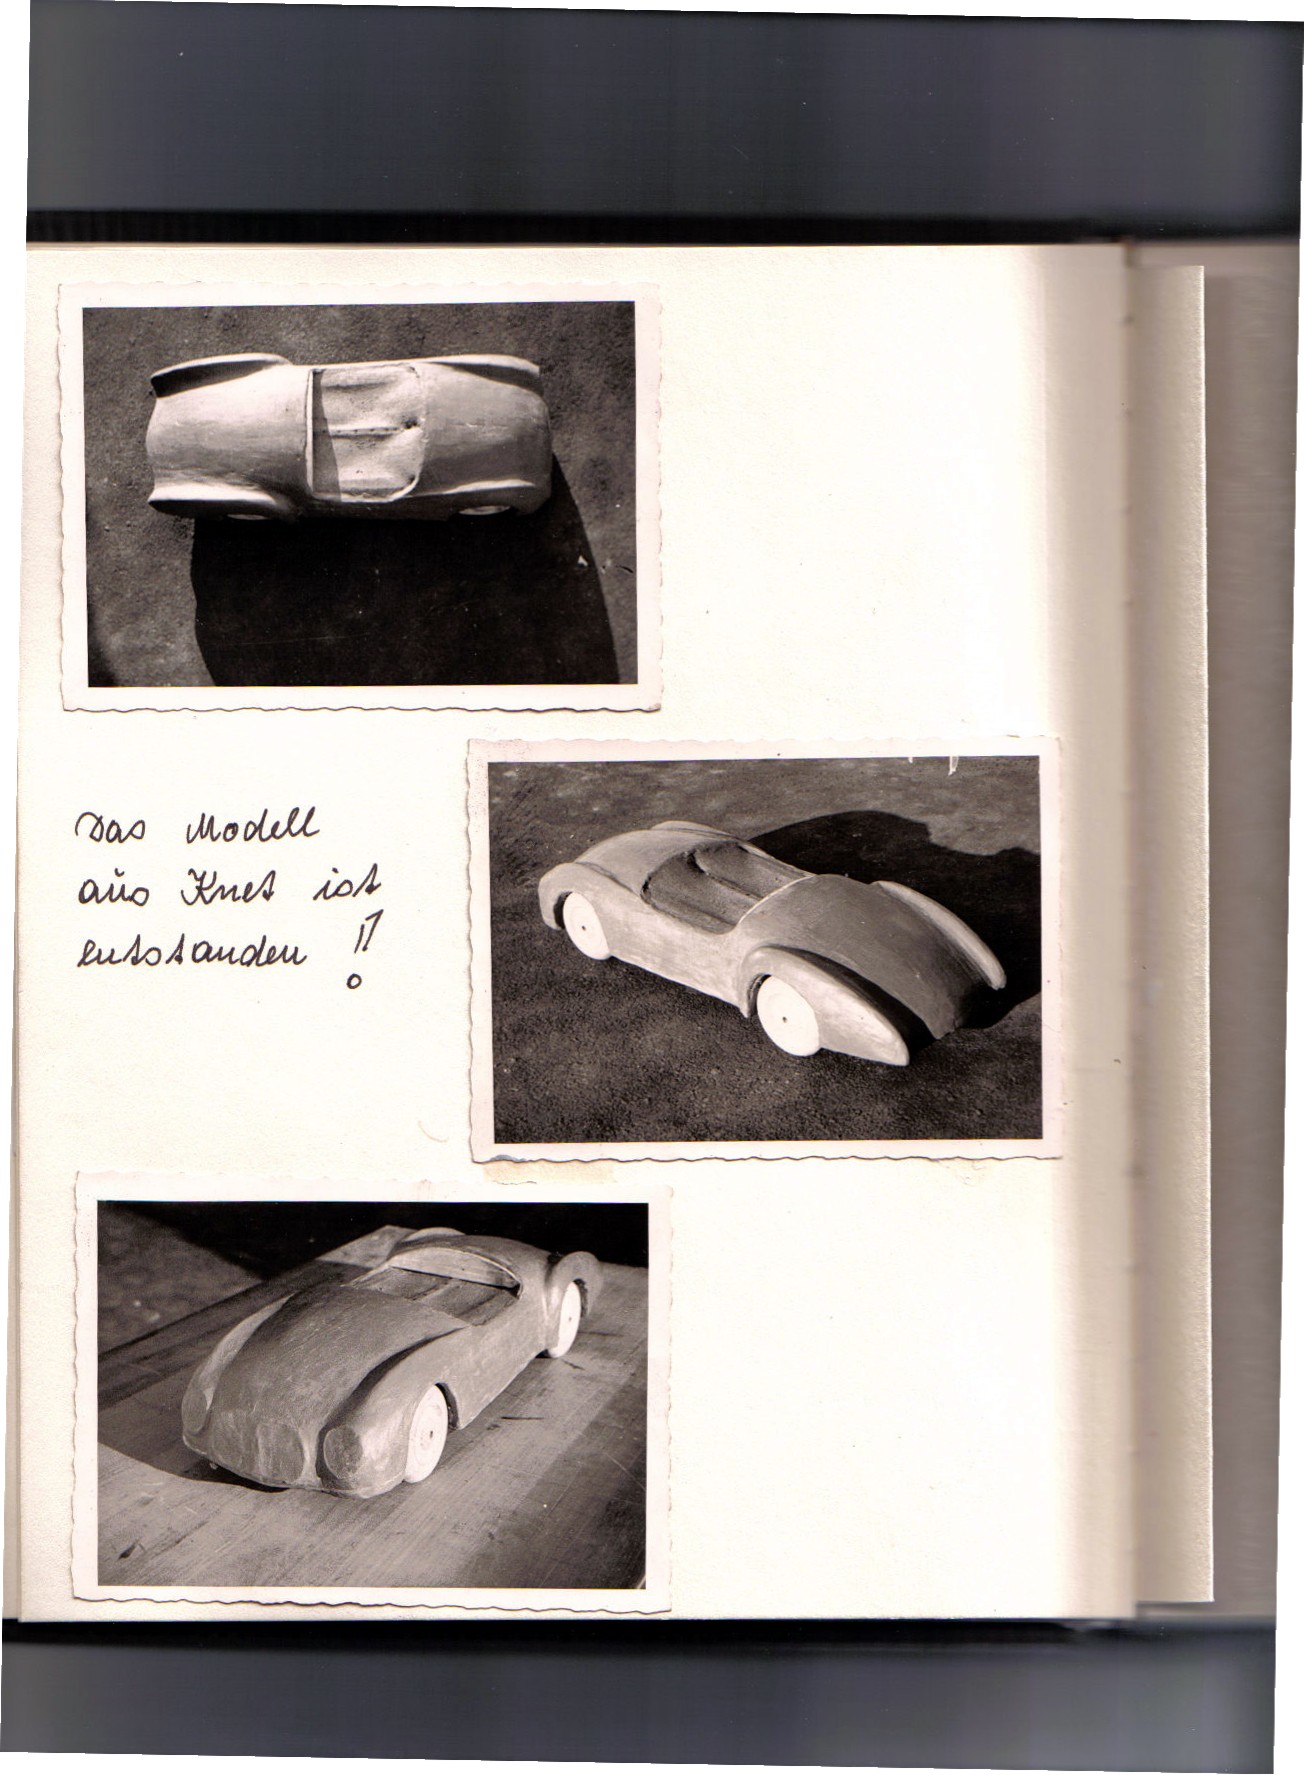 Das Modell
aus Knet ist
entstanden !!